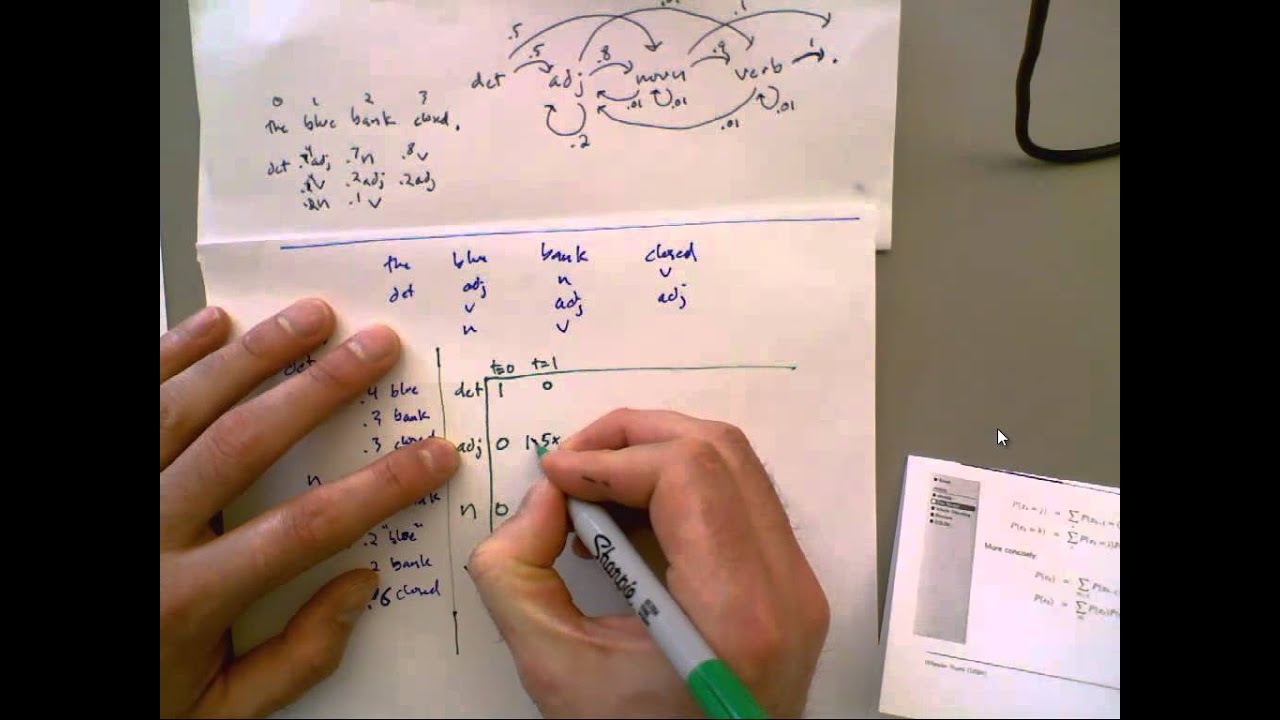 .5 .01 .1
.5 .8 .9 1
det adj noun verb .
.01 .01 .01
.2 .01
0 1 2 3
the blue bank closed.
det .4adj .7n .8v
.2adj .2adj
.2n .1 v
the blue bank closed
det adj n v
v adj adj
n v
det
t=0 t=1
.4 blue det 1 0
bank
.3 closed adj 0 1 .5x
n
n 0
.2 "blue"
.2 bank
.6 closed
Sharpie
More concisely: